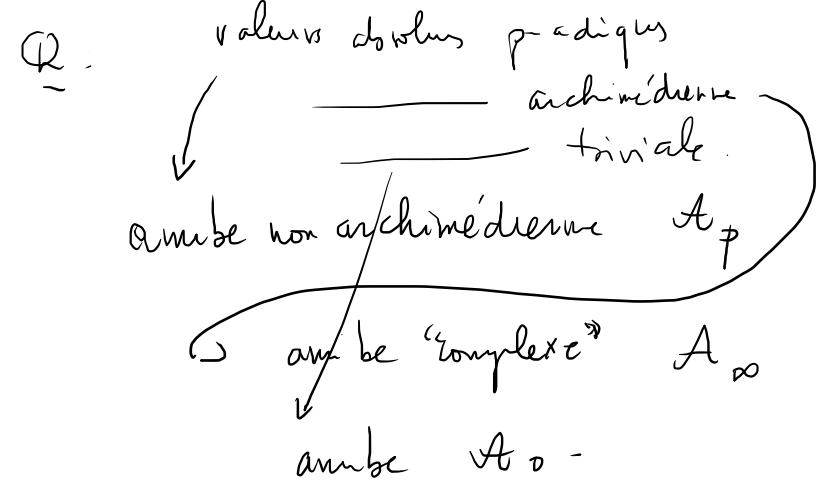 Q. valeurs absolues p-adiques
——— archimédienne
——— triviale.
amibe non archimédienne A_p
amibe "complexe" A_∞
amibe A_0 -